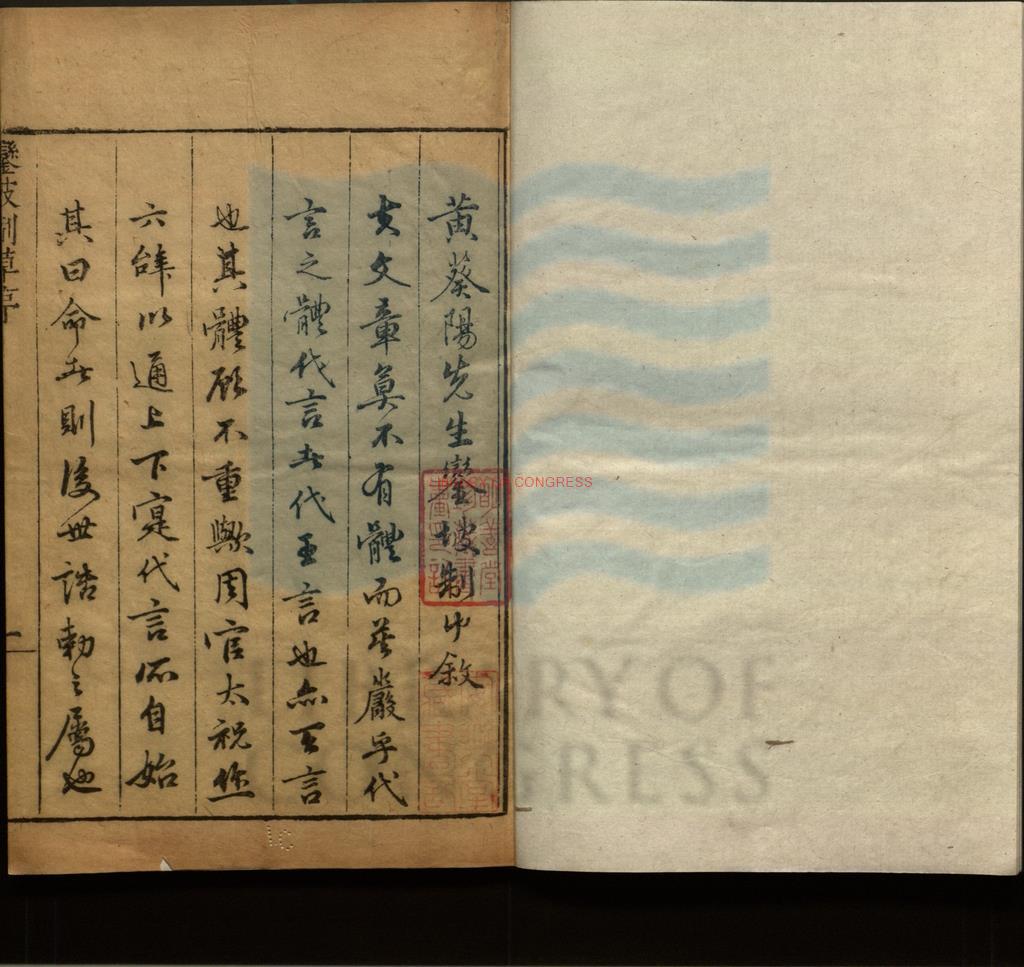 黃葵陽先生鑾坡制草敘
夫文章莫不有體而莫嚴乎代
言之體代言者代王言也亦王言
也其體顧不重歟周官太祝作
六辭以通上下寔代言所自始
其曰命者則後世誥勅之屬也
鑾坡制草序
一
LIBRARY OF CONGRESS
LIBRARY OF
CONGRESS